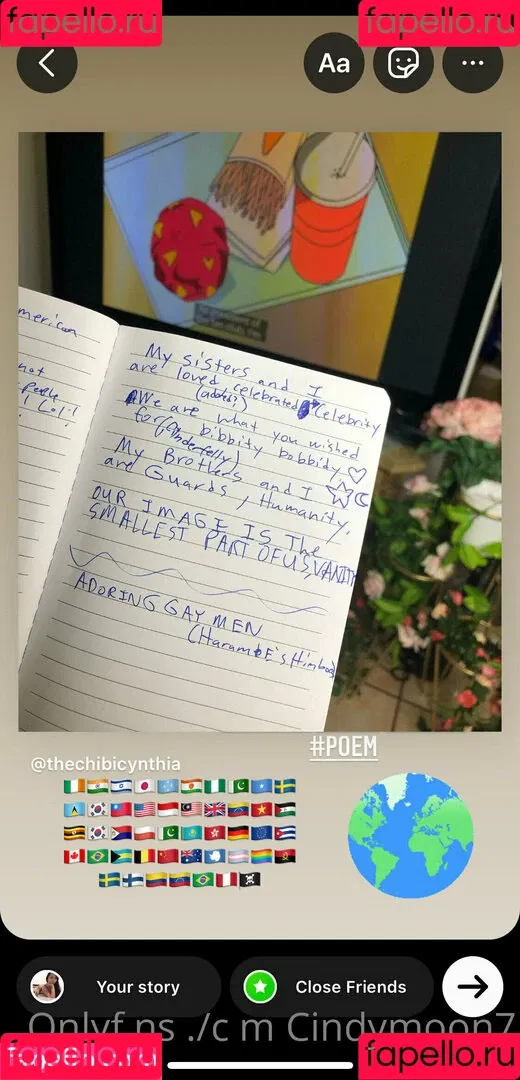 fapello.ru fapello.ru
Aa
merican
not
Lol!
My sisters and I
are loved, celebrated Celebrity
(adored?)
We are what you wished
for bibbity bobbidy
My Brothers and I
are Guards, Humanity.
OUR IMAGE IS The
SMALLEST PART OF US, VANITY
ADORING GAY MEN
#POEM
@thechibicynthia
Your story
Close Friends
Cindymoon7
fapello.ru fapello.ru